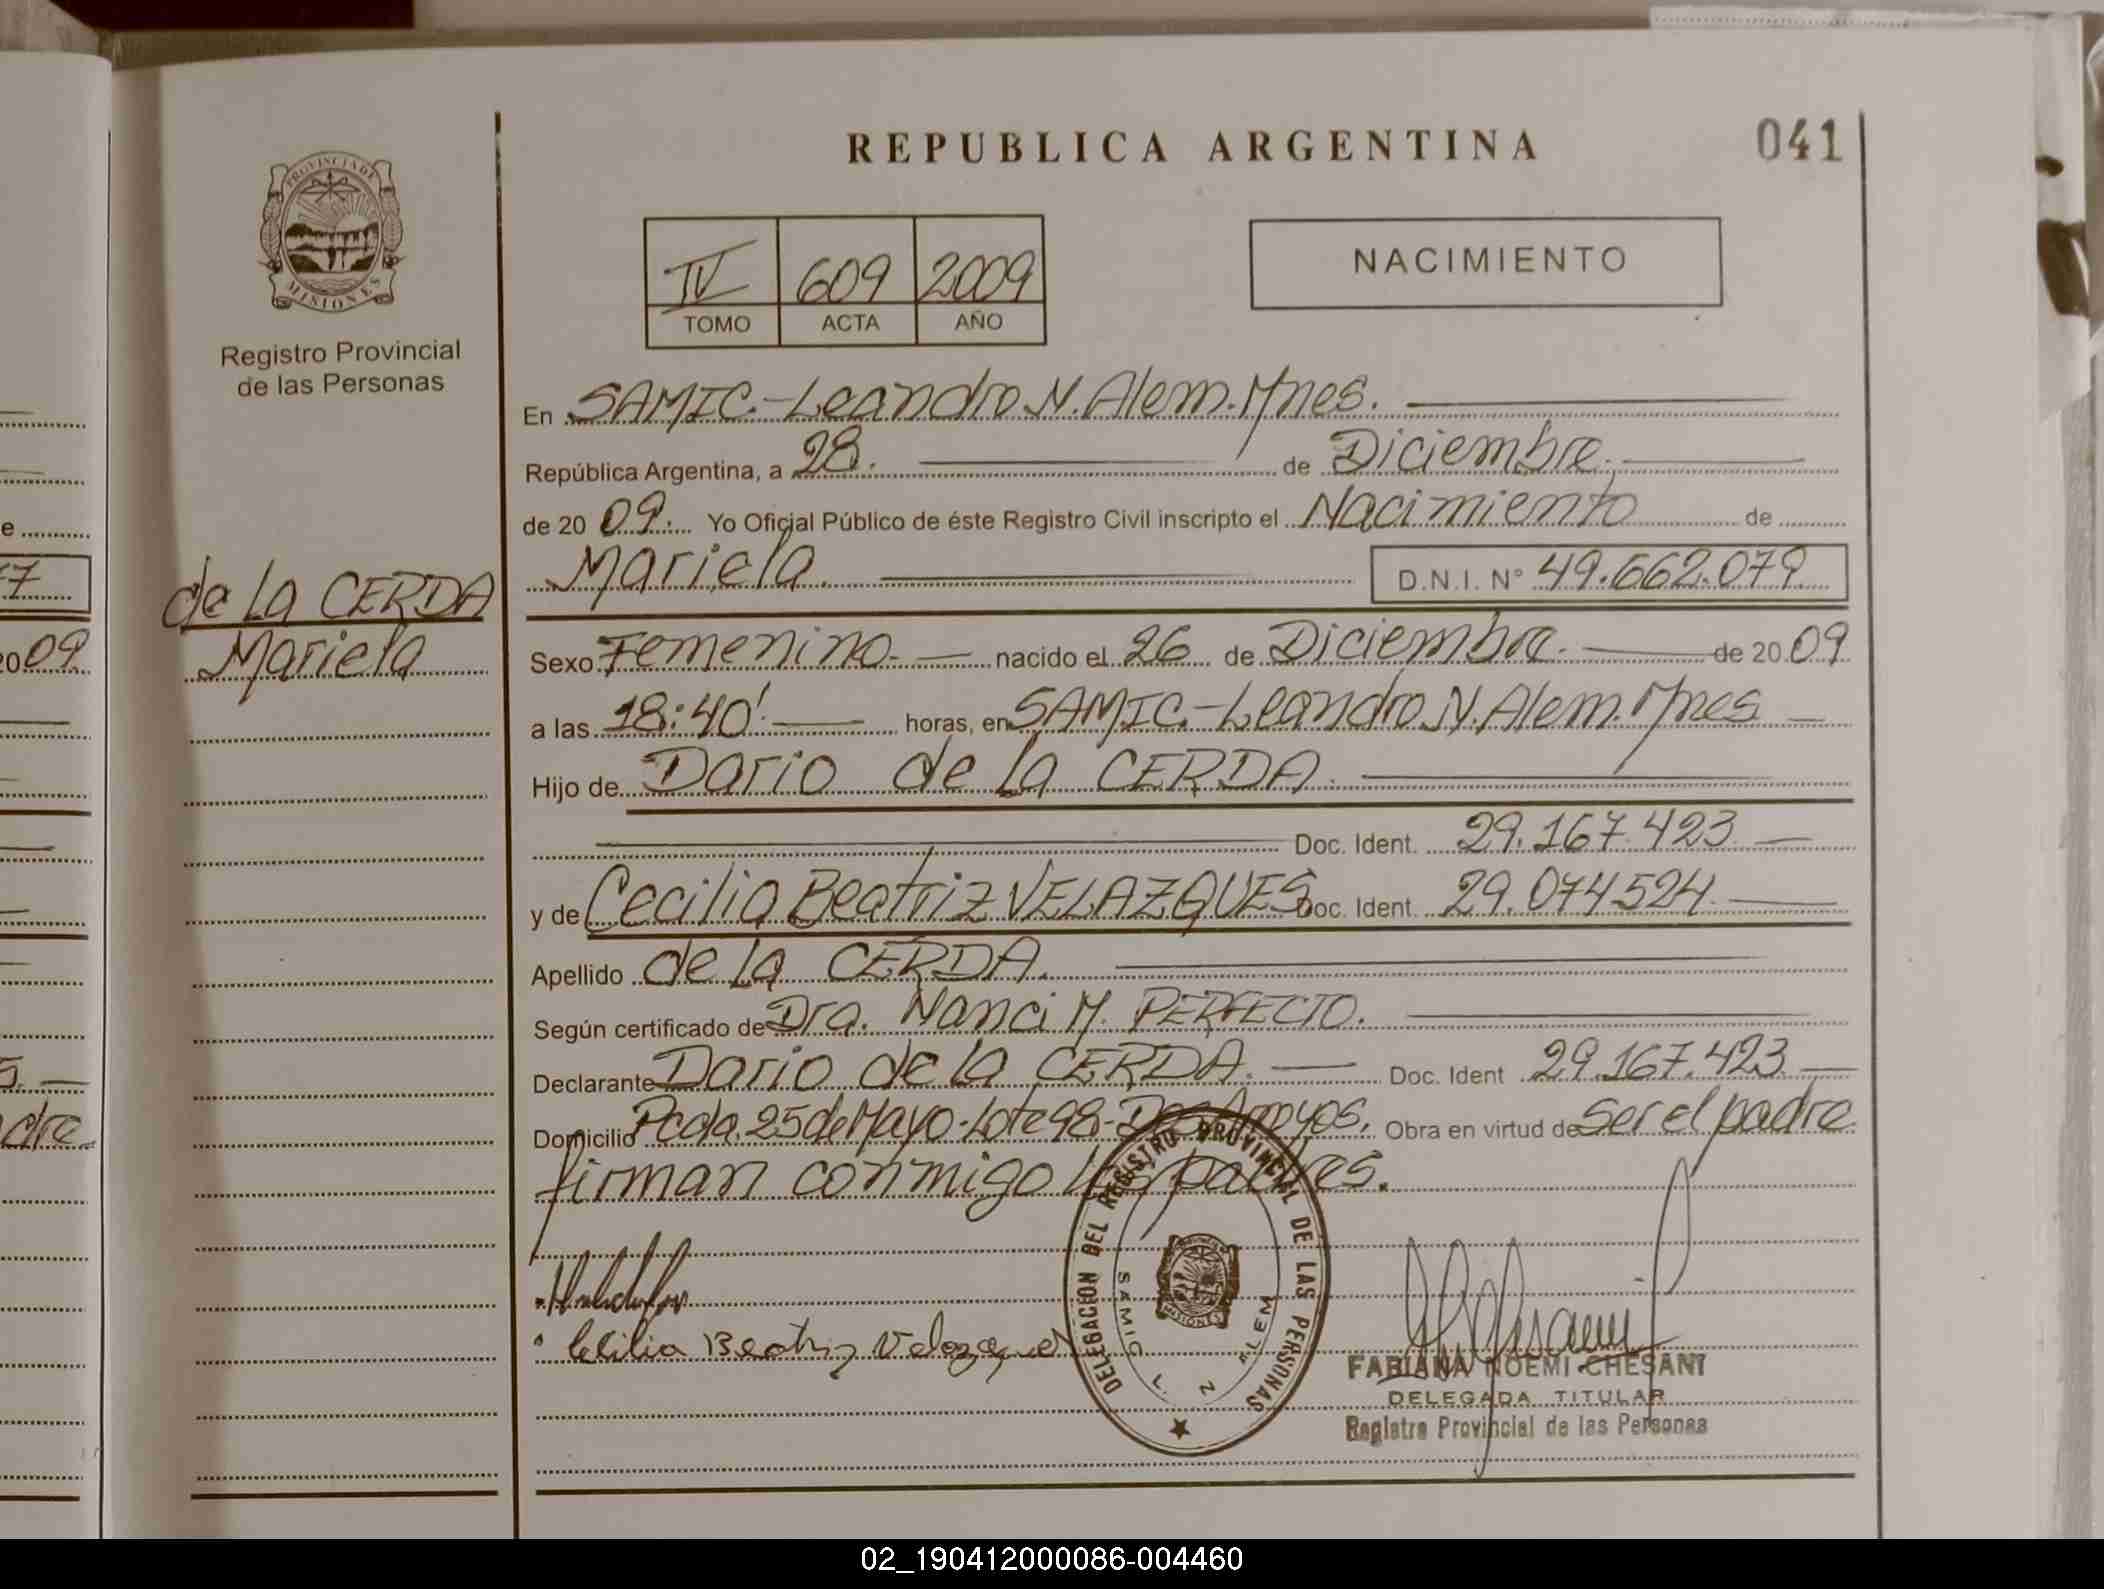 REPUBLICA ARGENTINA
041
PROVINCIA DE
MISIONES
Registro Provincial
de las Personas
IV 609 2009
TOMO ACTA AÑO
NACIMIENTO
En SAMIC.-Leandro N. Alem. Mnes.
República Argentina, a 28. de Diciembre.
de 20 09. Yo Oficial Público de éste Registro Civil inscripto el Nacimiento de
Mariela. D.N.I. N° 49.662.079
de la CERDA
Mariela
Sexo Femenino. nacido el 26 de Diciembre. de 20 09
a las 18:40'. horas, en SAMIC.-Leandro N. Alem. Mnes
Hijo de Dario de la CERDA.
Doc. Ident. 29.167.423
y de Cecilia Beatriz VELAZQUES Doc. Ident. 29.074524
Apellido de la CERDA.
Según certificado de Dra. Nanci M. PERFECTO.
Declarante Dario de la CERDA. Doc. Ident 29.167.423
Domicilio Pcda. 25 de Mayo-Lote 98-Dos Arroyos. Obra en virtud de Ser el padre
firman conmigo los padres.
Cecilia Beatriz Velazquez
DELEGACION DEL REGISTRO PROVINCIAL DE LAS PERSONAS
SAMIC L. N. ALEM
MISIONES
FABIANA NOEMI CHESANI
DELEGADA TITULAR
Registro Provincial de las Personas
e
77
2009
5.
adre
02_190412000086-004460